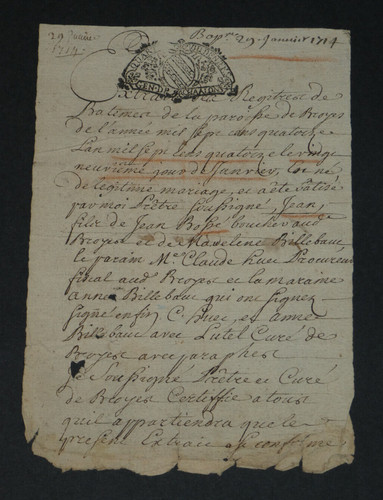 29 Janvier 1714
Bapt. 29. Janvier 1714
Extrait des Registres de
Batemes de la paroisse de Broyes
de l'année mil sept cens quatorze
L'an mil sept cens quatorze le vingt
neuvième jour de Janvier, est né
de légitime mariage, et a été batisé
par moi Prêtre soussigné, Jean,
fils de Jean Bossé boucher aud.
Broyes et de Madeleine Billebaut
le parain Me. Claude huc Procureur
fiscal aud Broyes et la maraine
anne Billebaut qui ont signez
signé enfin C. huc, et anne
Billebaut avec Lutel Curé de
Broyes avec paraphes
Je Soussigné Prêtre et Curé
de Broyes Certiffie a tous
quil appartiendra que le
present Extrait est conforme